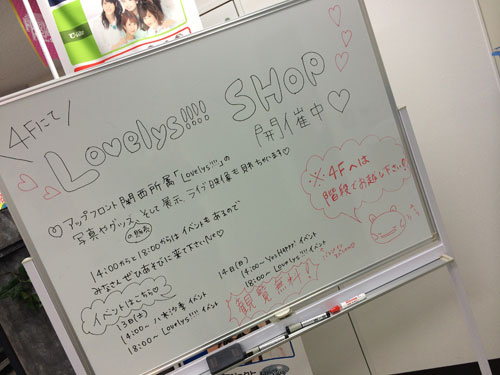 \ 4Fにて /
Lovelys!!!! SHOP
開催中♡
♡アップフロント関西所属「Lovelys!!!!」の
写真やグッズの販売、そして展示、ライブ映像も流れちゃいます♡
14:00からと18:00からはイベントもあるので
みなさんぜひあそびに来て下さいねっ♡
※4Fへは
階段でお越し下さい!
イベントはこちら♡
13日(土)
14:00〜 八木沙季 イベント
18:00〜 Lovelys!!!! イベント
14日(日)
14:00〜 YuiHappy! イベント
18:00〜 Lovelys!!!! イベント
観覧無料!